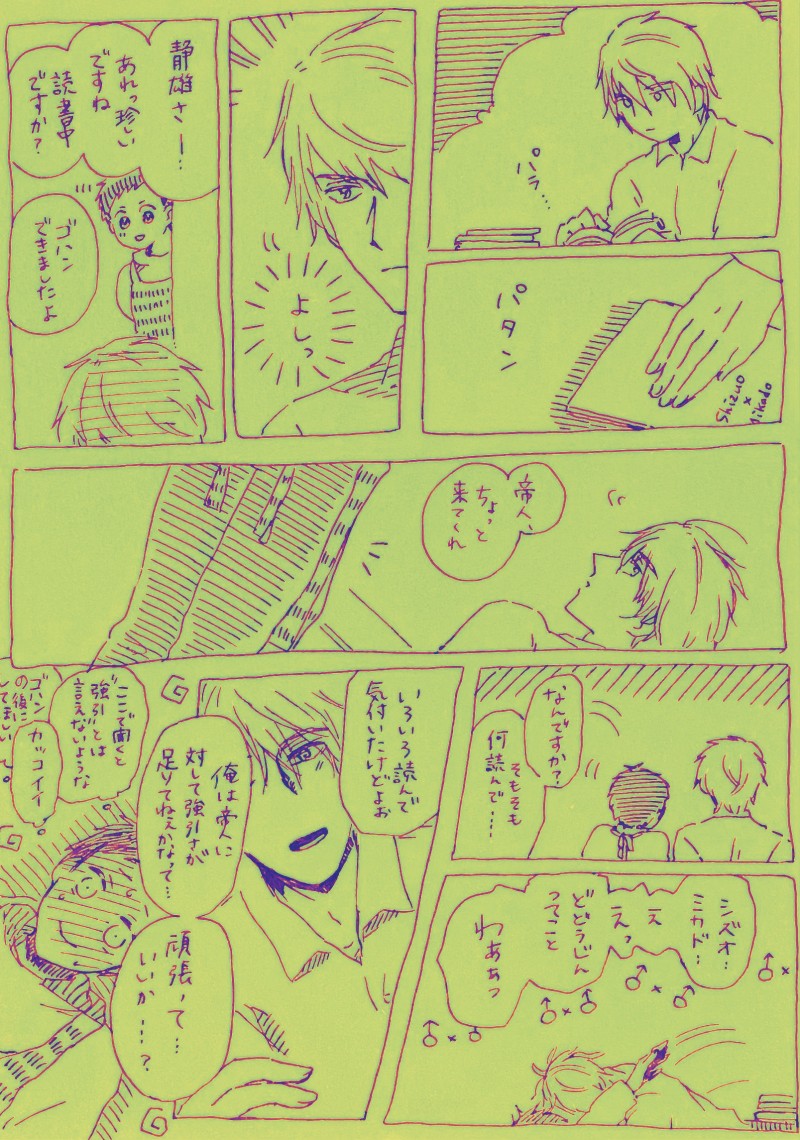 パラ…
パタン
Shizuo
×
Mikado
よしっ
静雄さー…
あれっ珍しい
ですね
読書中
ですか?
ゴハン
できましたよ
帝人、
ちょっと
来てくれ
なんですか?
そもそも
何読んで……
シズオ…
ミカド…
え
えっ
どどうじん
ってこと
わああっ
♂×♂
♂×♂
♂×♂
いろいろ読んで
気付いたけどよぉ
俺は帝人に
対して強引さが
足りてねぇかなって…
頑張って…
いいか……?
ここで聞くと
“強引”とは
言えないような
カッコイイ
ゴハン
の後に
してほしい